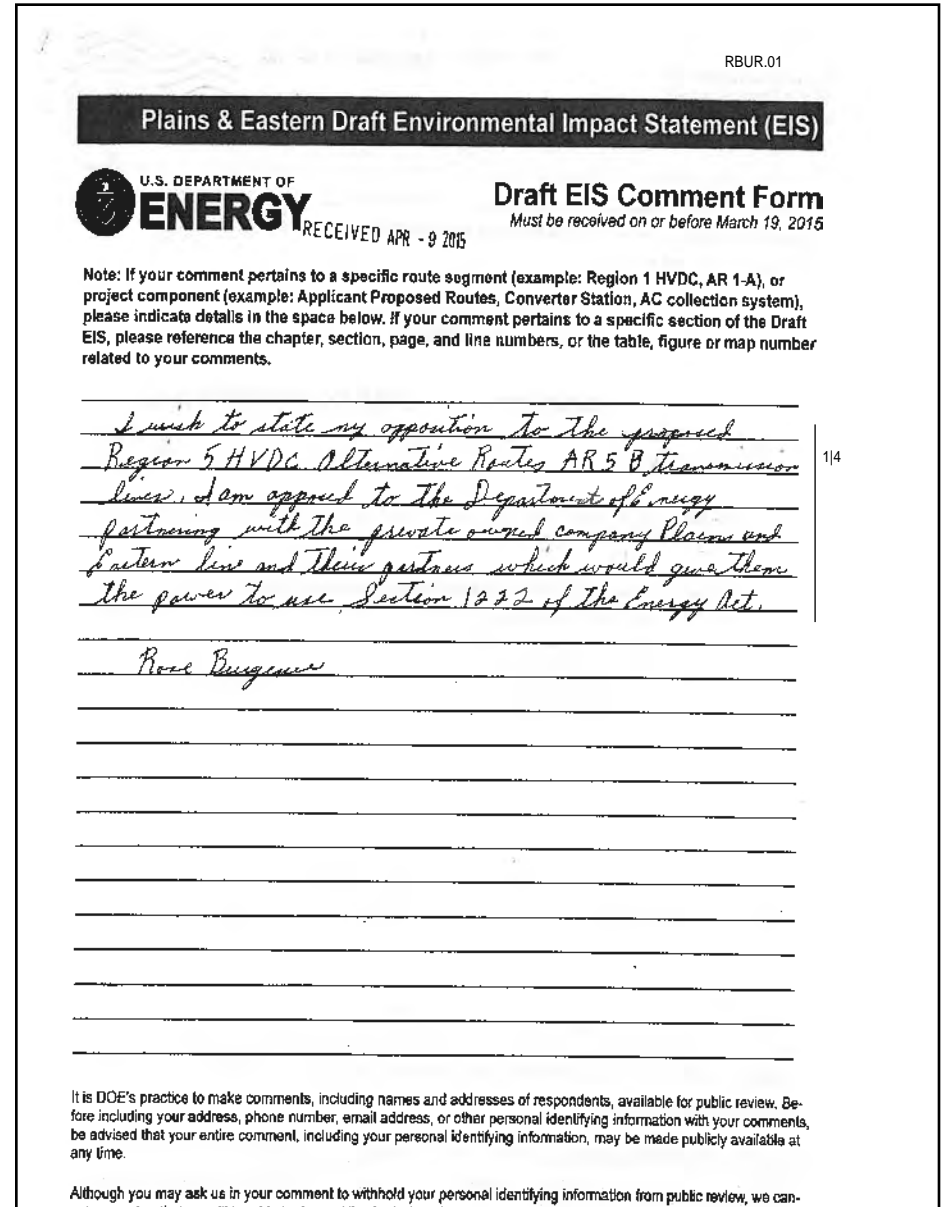 RBUR.01
Plains & Eastern Draft Environmental Impact Statement (EIS)
U.S. DEPARTMENT OF
ENERGY
RECEIVED APR - 9 2015
Draft EIS Comment Form
Must be received on or before March 19, 2015
Note: If your comment pertains to a specific route segment (example: Region 1 HVDC, AR 1-A), or
project component (example: Applicant Proposed Routes, Converter Station, AC collection system),
please indicate details in the space below. If your comment pertains to a specific section of the Draft
EIS, please reference the chapter, section, page, and line numbers, or the table, figure or map number
related to your comments.
I wish to state my opposition to the proposed
Region 5 HVDC Alternative Routes AR 5 B transmission
lines. I am opposed to the Department of Energy
partnering with the private owned company Plains and
Eastern line and their partners which would give them
the power to use Section 1222 of the Energy Act.
1|4
Rose
It is DOE's practice to make comments, including names and addresses of respondents, available for public review. Be-
fore including your address, phone number, email address, or other personal identifying information with your comments,
be advised that your entire comment, including your personal identifying information, may be made publicly available at
any time.
Although you may ask us in your comment to withhold your personal identifying information from public review, we can-